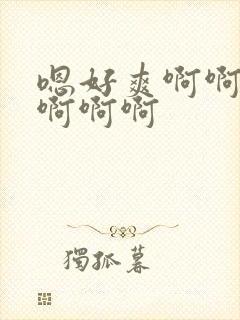 嗯好爽啊啊
啊啊啊
獨孤暮